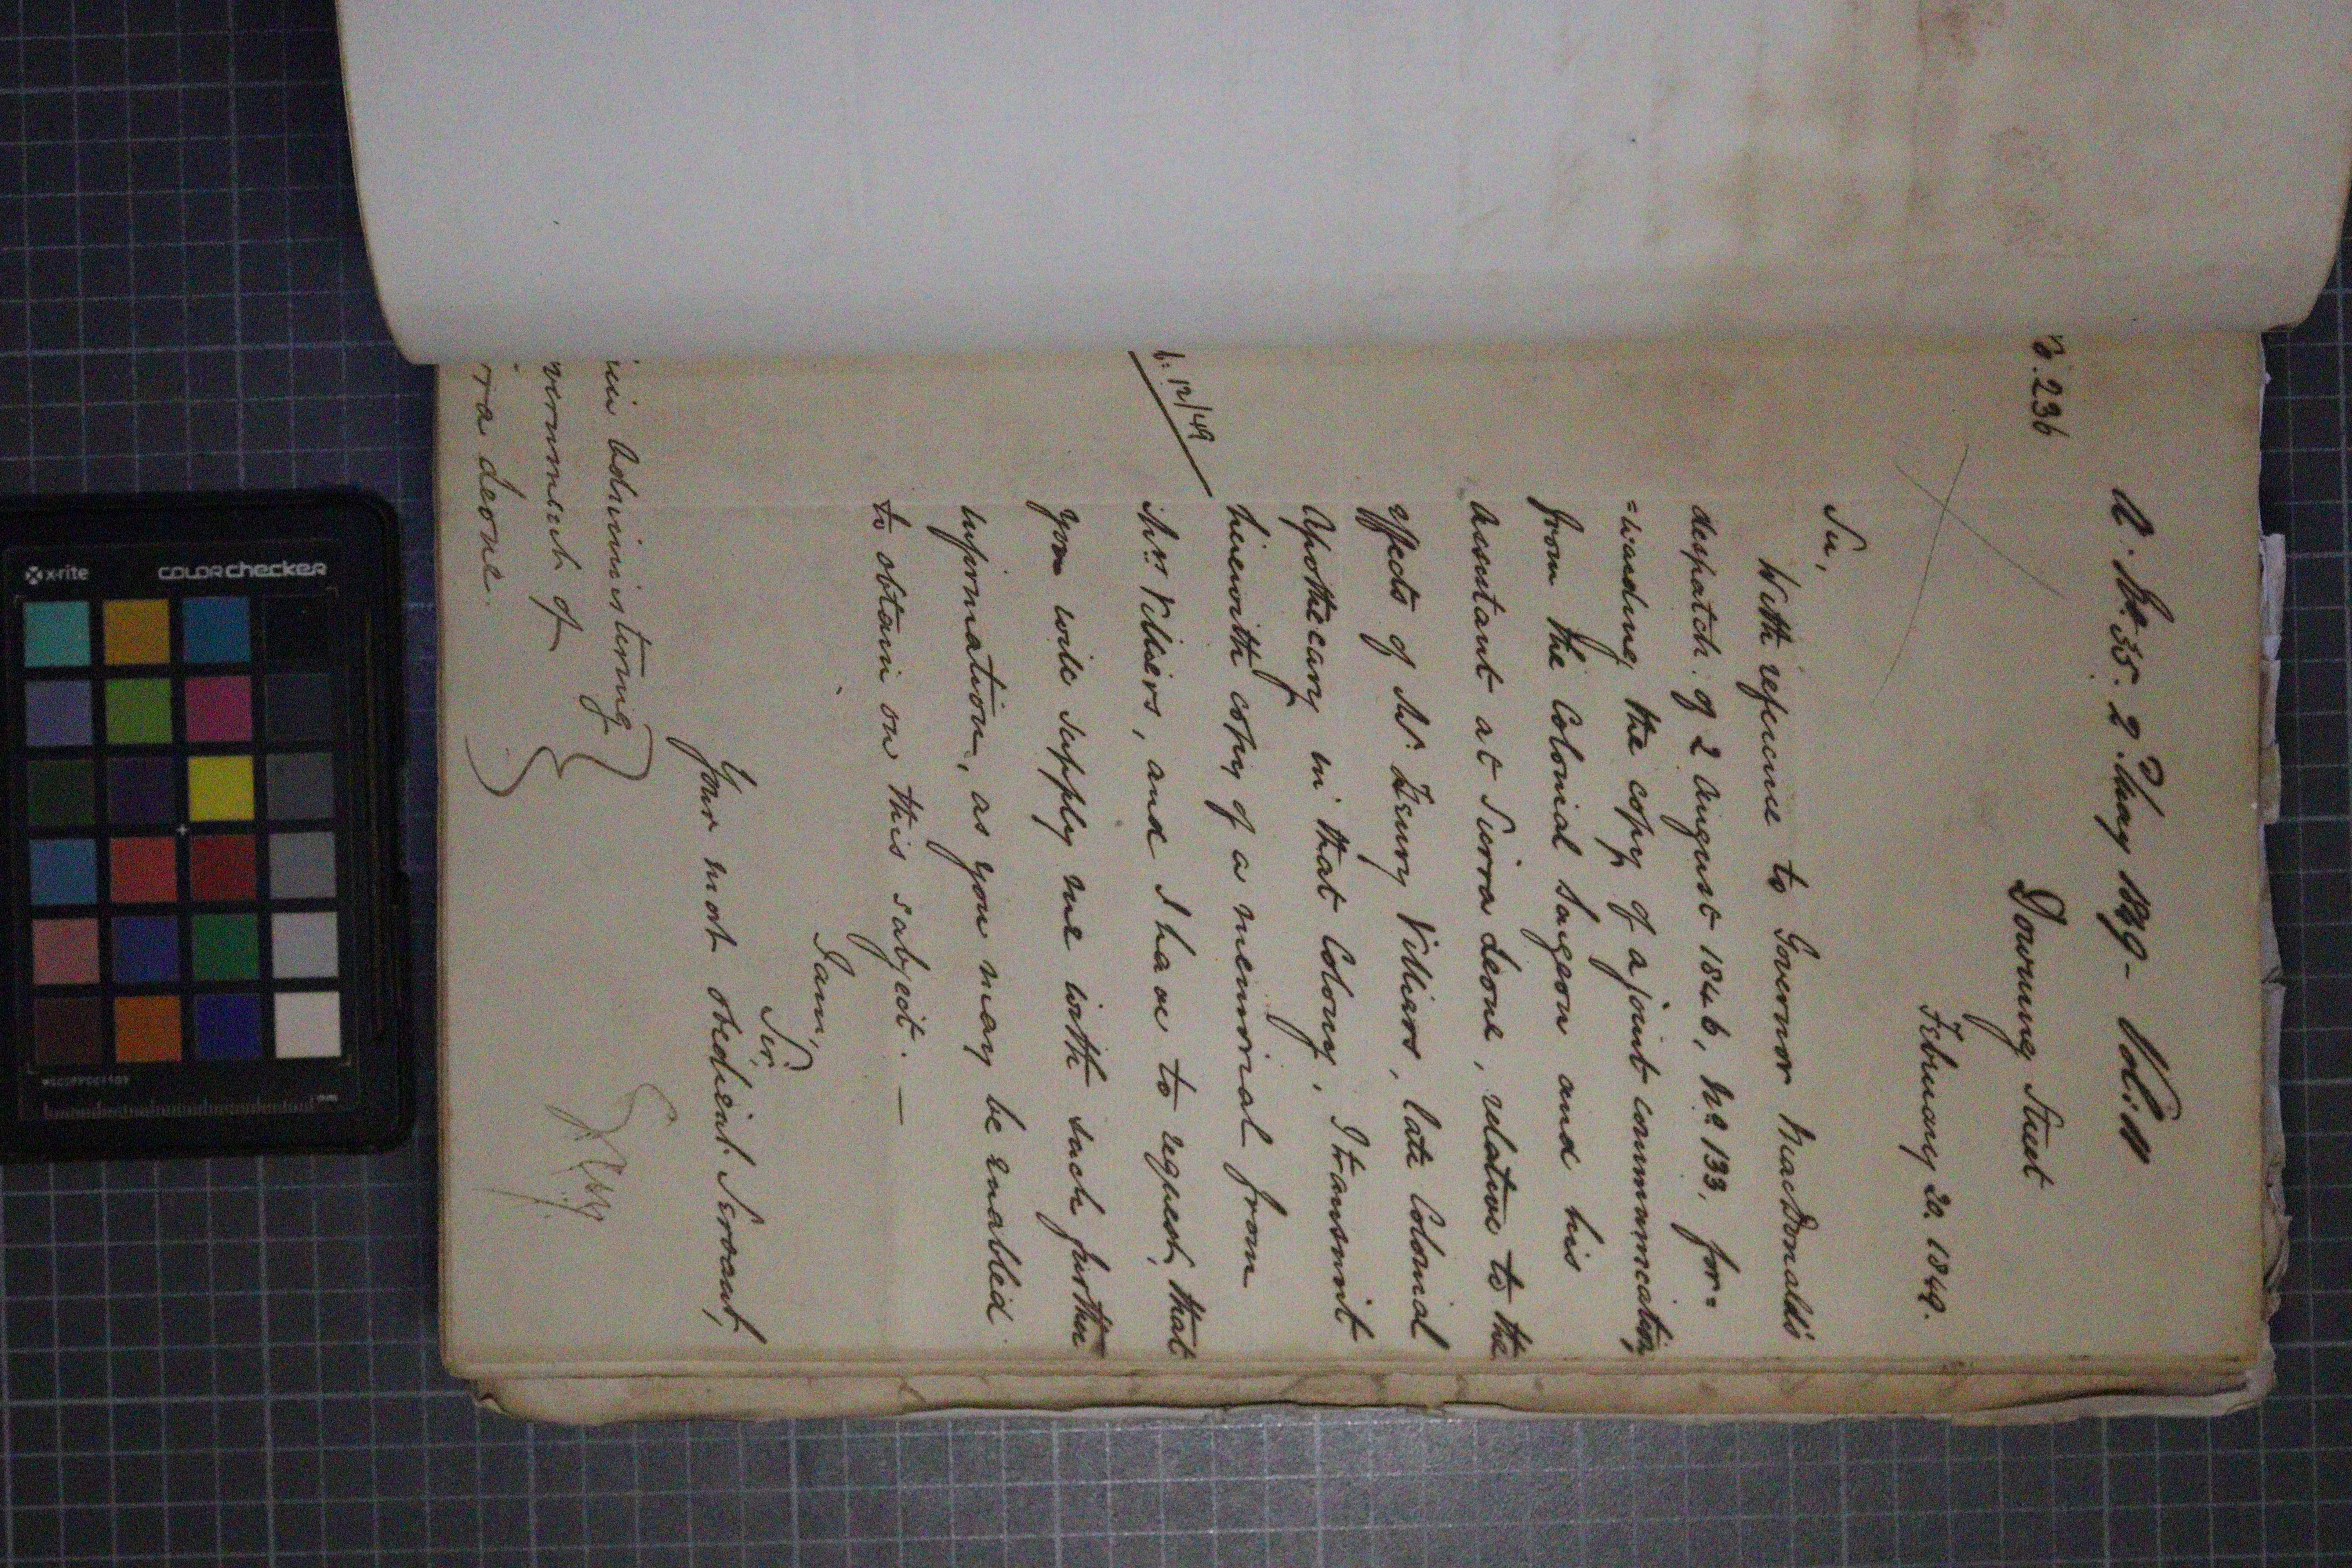 A. No. 35. 2d. May 1849 - Vol: 11
No. 236
Downing Street
February 20. 1849.
Sir,
With reference to Governor MacDonald's
despatch of 2 August 1846, No. 133, for=
=warding the copy of a joint communication
from the Colonial Surgeon and his
Assistant at Sierra Leone, relative to the
effects of Mr. Henry Villiers, late Colonial
Apothecary in that Colony, I transmit
herewith copy of a memorial from
b: 12/49
Mrs. Villiers, and I have to request, that
you will supply me with such further
information, as you may be enabled
to obtain on this subject. —
I am,
Sir,
Your most obedient Servant,
Grey
administering
vernment of
ra Leone.
x-rite
colorchecker
mm